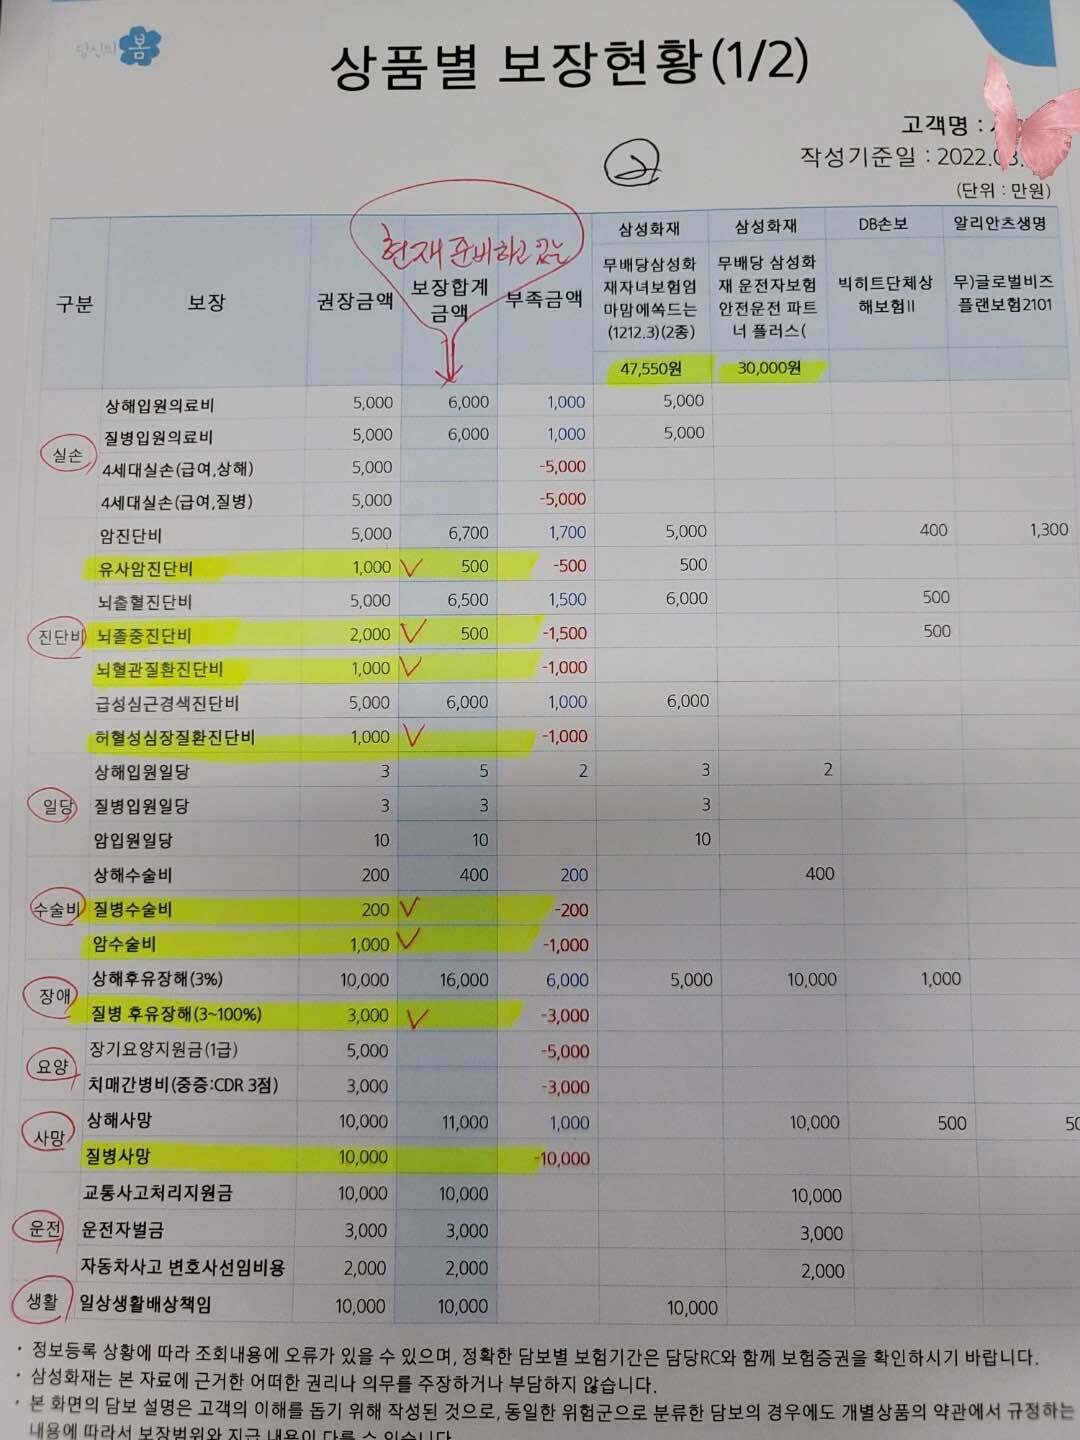 당신의 봄
상품별 보장현황(1/2)
고객명 :
작성기준일 : 2022.03.
(단위 : 만원)
현재 준비하고 있는
구분 보장 권장금액 보장합계 금액 부족금액
삼성화재 삼성화재 DB손보 알리안츠생명
무배당삼성화 무배당 삼성화 빅히트단체상 무)글로벌비즈
재자녀보험엄 재 운전자보험 해보험II 플랜보험2101
마맘에쏙드는 안전운전 파트
(1212.3)(2종) 너 플러스(
47,550원 30,000원
실손
상해입원의료비 5,000 6,000 1,000 5,000
질병입원의료비 5,000 6,000 1,000 5,000
4세대실손(급여,상해) 5,000 -5,000
4세대실손(급여,질병) 5,000 -5,000
진단비
암진단비 5,000 6,700 1,700 5,000 400 1,300
유사암진단비 1,000 500 -500 500
뇌출혈진단비 5,000 6,500 1,500 6,000 500
뇌졸중진단비 2,000 500 -1,500 500
뇌혈관질환진단비 1,000 -1,000
급성심근경색진단비 5,000 6,000 1,000 6,000
허혈성심장질환진단비 1,000 -1,000
일당
상해입원일당 3 5 2 3 2
질병입원일당 3 3 3
암입원일당 10 10 10
수술비
상해수술비 200 400 200 400
질병수술비 200 -200
암수술비 1,000 -1,000
장애
상해후유장해(3%) 10,000 16,000 6,000 5,000 10,000 1,000
질병 후유장해(3~100%) 3,000 -3,000
요양
장기요양지원금(1급) 5,000 -5,000
치매간병비(중증:CDR 3점) 3,000 -3,000
사망
상해사망 10,000 11,000 1,000 10,000 500
질병사망 10,000 -10,000
운전
교통사고처리지원금 10,000 10,000 10,000
운전자벌금 3,000 3,000 3,000
자동차사고 변호사선임비용 2,000 2,000 2,000
생활
일상생활배상책임 10,000 10,000 10,000
· 정보등록 상황에 따라 조회내용에 오류가 있을 수 있으며, 정확한 담보별 보험기간은 담당RC와 함께 보험증권을 확인하시기 바랍니다.
· 삼성화재는 본 자료에 근거한 어떠한 권리나 의무를 주장하거나 부담하지 않습니다.
· 본 화면의 담보 설명은 고객의 이해를 돕기 위해 작성된 것으로, 동일한 위험군으로 분류한 담보의 경우에도 개별상품의 약관에서 규정하는
내용에 따라서 보장범위와 지급 내용이 다를 수 있습니다